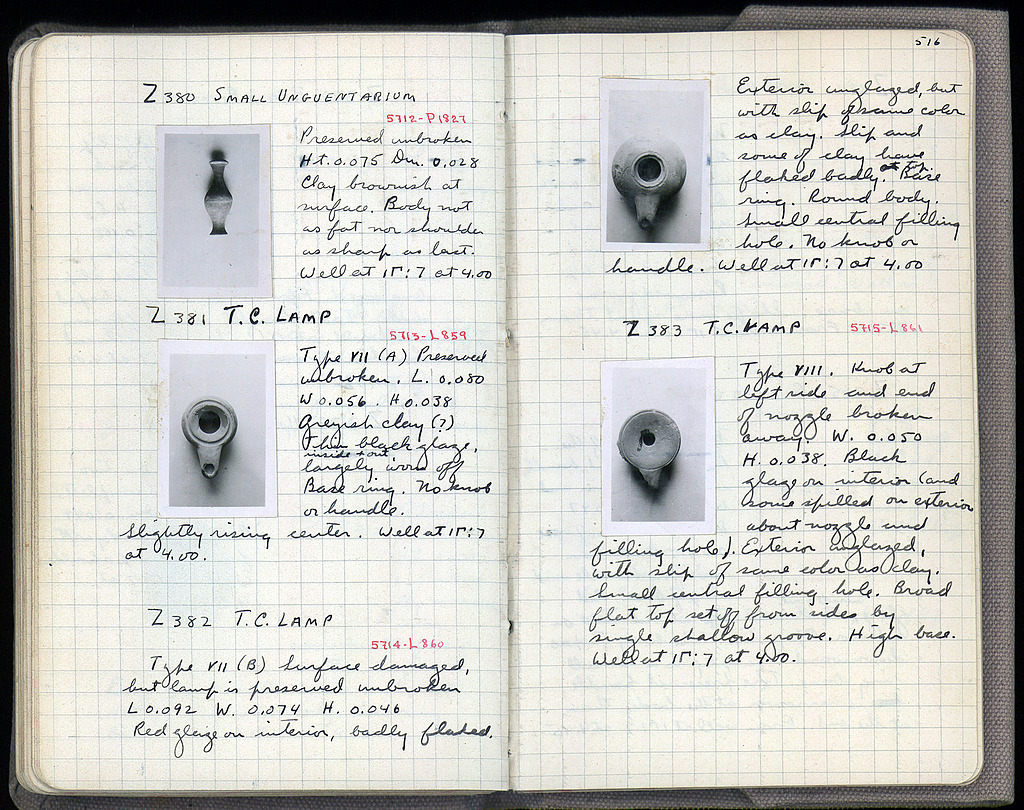 Z 380 SMALL UNGUENTARIUM
5712-P1827
Preserved unbroken
Ht. 0.075 Dm. 0.028
Clay brownish at
surface. Body not
as fat nor shoulder
as sharp as last.
Well at ΙΓ:7 at 4.00
Z 381 T.C. LAMP
5713-L859
Type VII (A) Preserved
unbroken. L. 0.080
W 0.056. H 0.038
Greyish clay (?)
Thin black glaze,
inside + out
largely worn off
Base ring. No knob
or handle.
Slightly rising center. Well at ΙΓ:7
at 4.00.
Z 382 T.C. LAMP
5714-L860
Type VII (B) Surface damaged,
but lamp is preserved unbroken
L 0.092 W. 0.074 H. 0.046
Red glaze on interior, badly flaked.
516
Exterior unglazed, but
with slip of same color
as clay. Slip and
some of clay have
flaked badly at top. Base
ring. Round body.
Small central filling
hole. No knob or
handle. Well at ΙΓ:7 at 4.00
Z 383 T.C. LAMP
5715-L861
Type VIII. Knob at
left side and end
of nozzle broken
away. W. 0.050
H. 0.038. Black
glaze on interior (and
some spilled on exterior
about nozzle and
filling hole). Exterior unglazed,
with slip of same color as clay.
Small central filling hole. Broad
flat top set off from sides by
single shallow groove. High base.
Well at ΙΓ:7 at 4.00.